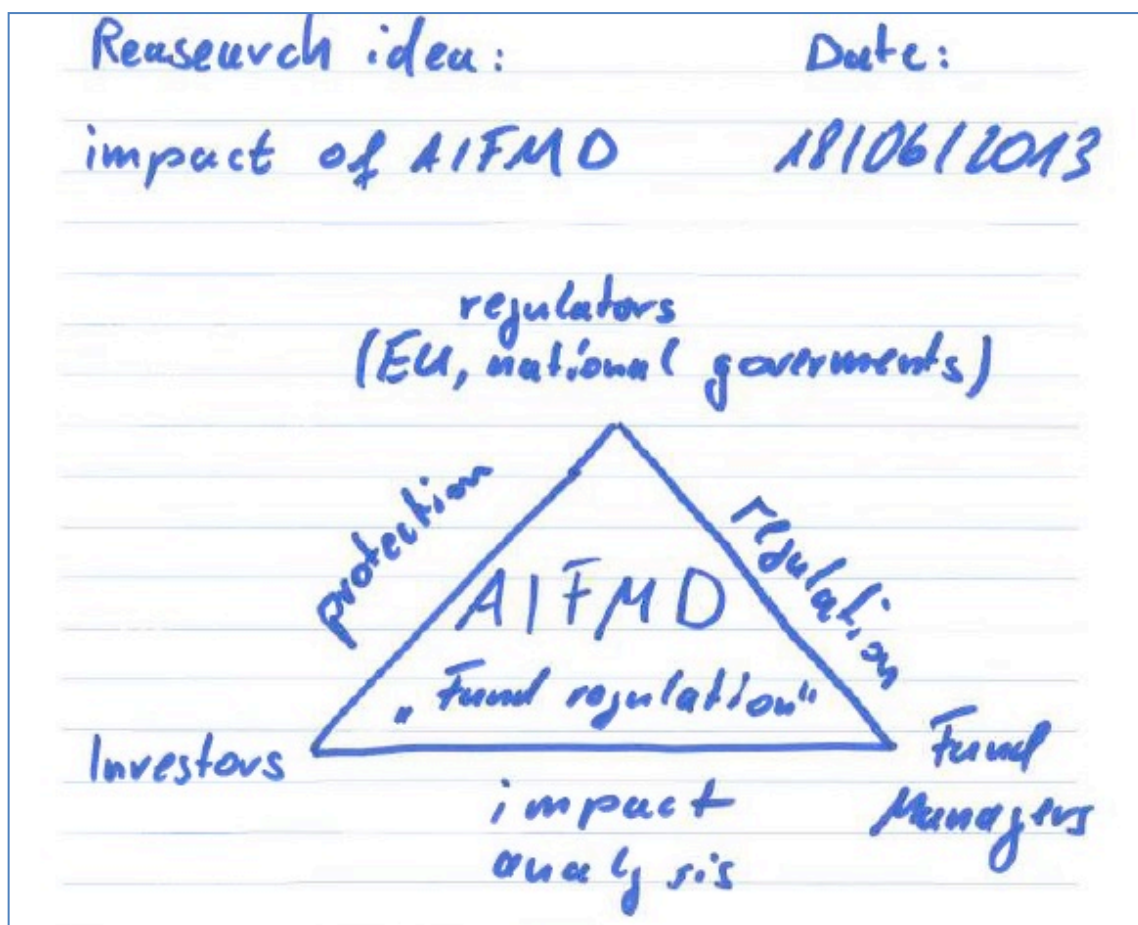 Reasearch idea: Date:
impact of AIFMD 18/06/2013
regulators
(EU, national goverments)
protection
regulation
AIFMD
„Fund regulation“
Investors
Fund
Managers
impact
analysis